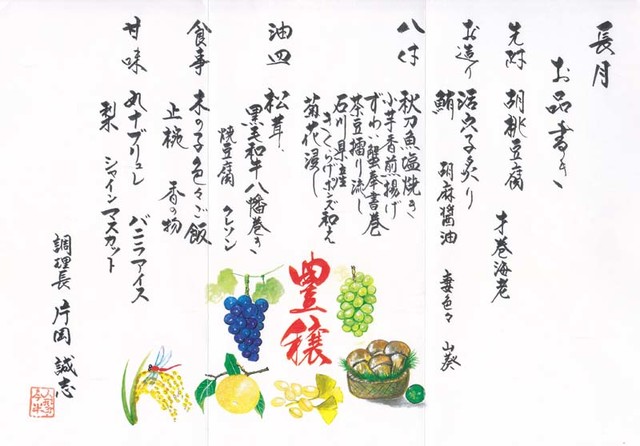 長月
お品書き
先附 胡桃豆腐 才巻海老
お造り 活穴子炙り 胡麻醤油 妻色々 山葵
鮪
八寸 秋刀魚塩焼き
小芋香煎揚げ
ずわい蟹奉書巻
茶豆擂り流し
石川県産
きくらげポンズ和え
菊花浸し
油皿 松茸
黒毛和牛八幡巻き
焼豆腐 クレソン
食事 木の子色々ご飯
止椀 香の物
甘味 丸十ブリュレ バニラアイス
梨 シャインマスカット
調理長 片岡誠志
豊穣